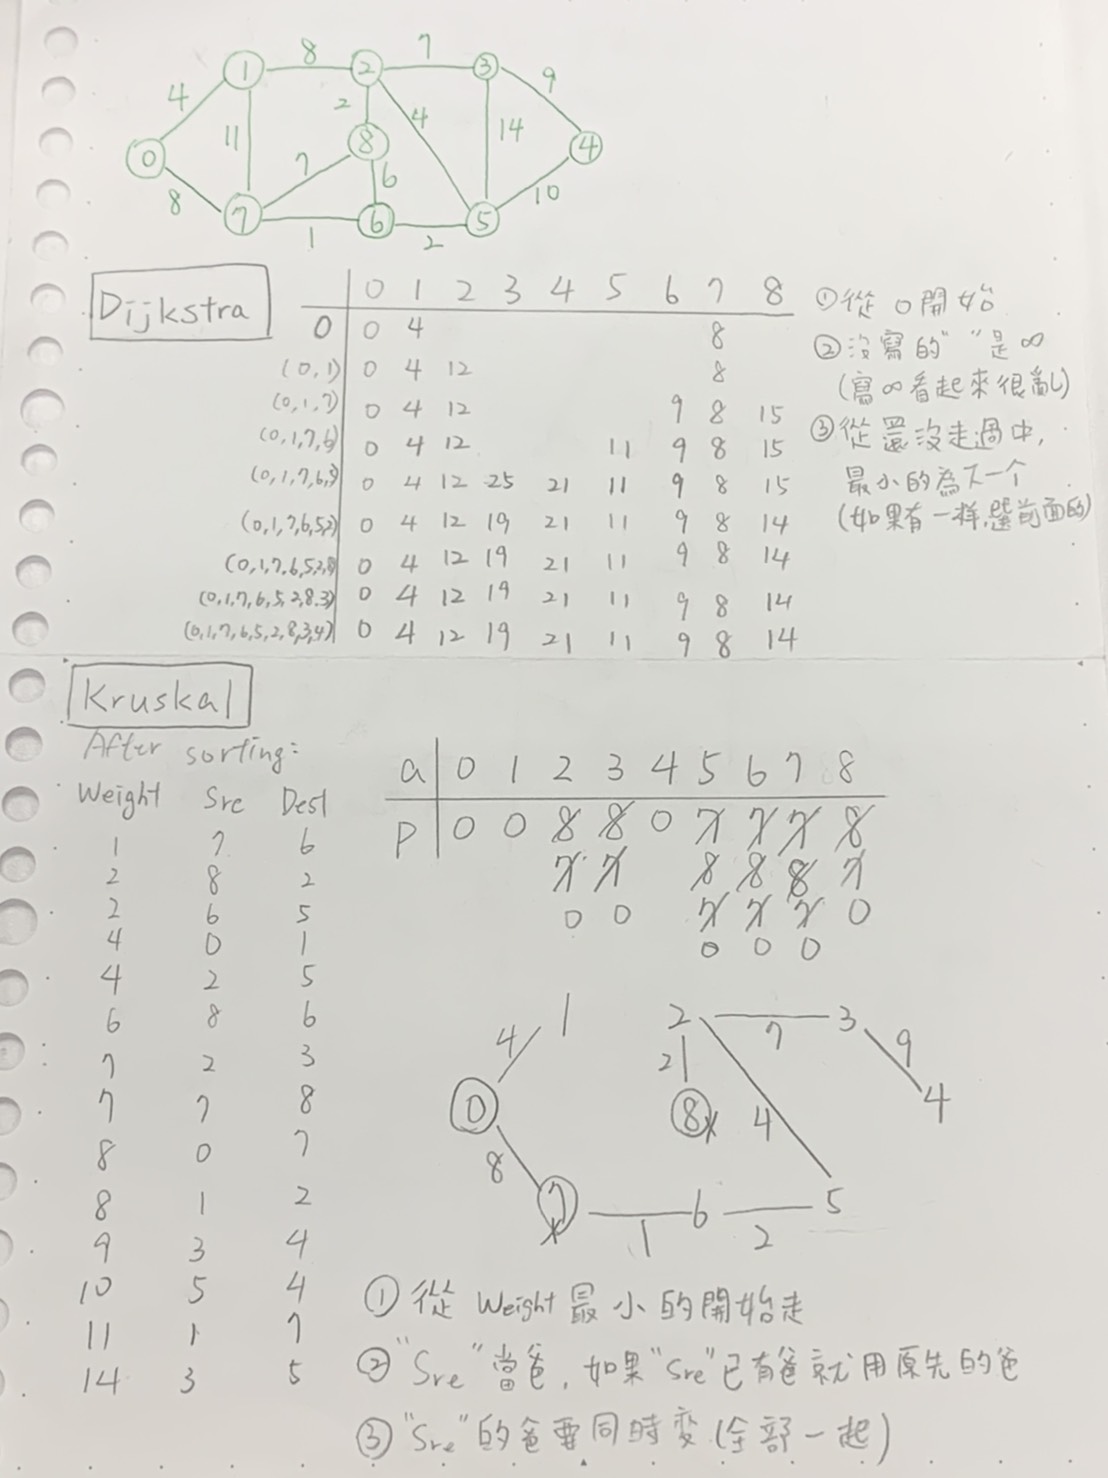 8 7
4 11 2 4 14 9
1 2 3
0 8 4
8 7 6 10
7 6 5
1 2
Dijkstra
0 1 2 3 4 5 6 7 8
0 0 4 8
(0,1) 0 4 12 8
(0,1,7) 0 4 12 9 8 15
(0,1,7,6) 0 4 12 11 9 8 15
(0,1,7,6,5) 0 4 12 25 21 11 9 8 15
(0,1,7,6,5,2) 0 4 12 19 21 11 9 8 14
(0,1,7,6,5,2,8) 0 4 12 19 21 11 9 8 14
(0,1,7,6,5,2,8,3) 0 4 12 19 21 11 9 8 14
(0,1,7,6,5,2,8,3,4) 0 4 12 19 21 11 9 8 14
①從 0開始
②沒寫的" "是∞
(寫∞看起來很亂)
③從還沒走過中,
最小的為下一个
(如果有一样,選前面的)
Kruskal
After sorting:
Weight Src Dest
1 7 6
2 8 2
2 6 5
4 0 1
4 2 5
6 8 6
7 2 3
7 7 8
8 0 7
8 1 2
9 3 4
10 5 4
11 1 7
14 3 5
a 0 1 2 3 4 5 6 7 8
p 0 0 8 8 0 7 7 7 8
7 7 8 8 8 7
0 0 7 7 7 0
0 0 0
4 1 2 7 3 9
0 2 8 4 4
8 7 1 6 2 5
①從 Weight 最小的開始走
②"Src"當爸,如果"Src"已有爸就用原先的爸
③"Src"的爸要同時變(全部一起)